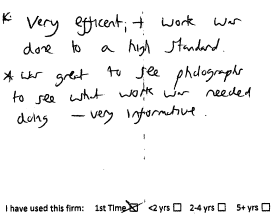 Very efficent, + work was
done to a high standard.
* was great to see photographs
to see what work was needed
doing — very informative.
I have used this firm: 1st Time ☒ <2 yrs ☐ 2-4 yrs ☐ 5+ yrs ☐